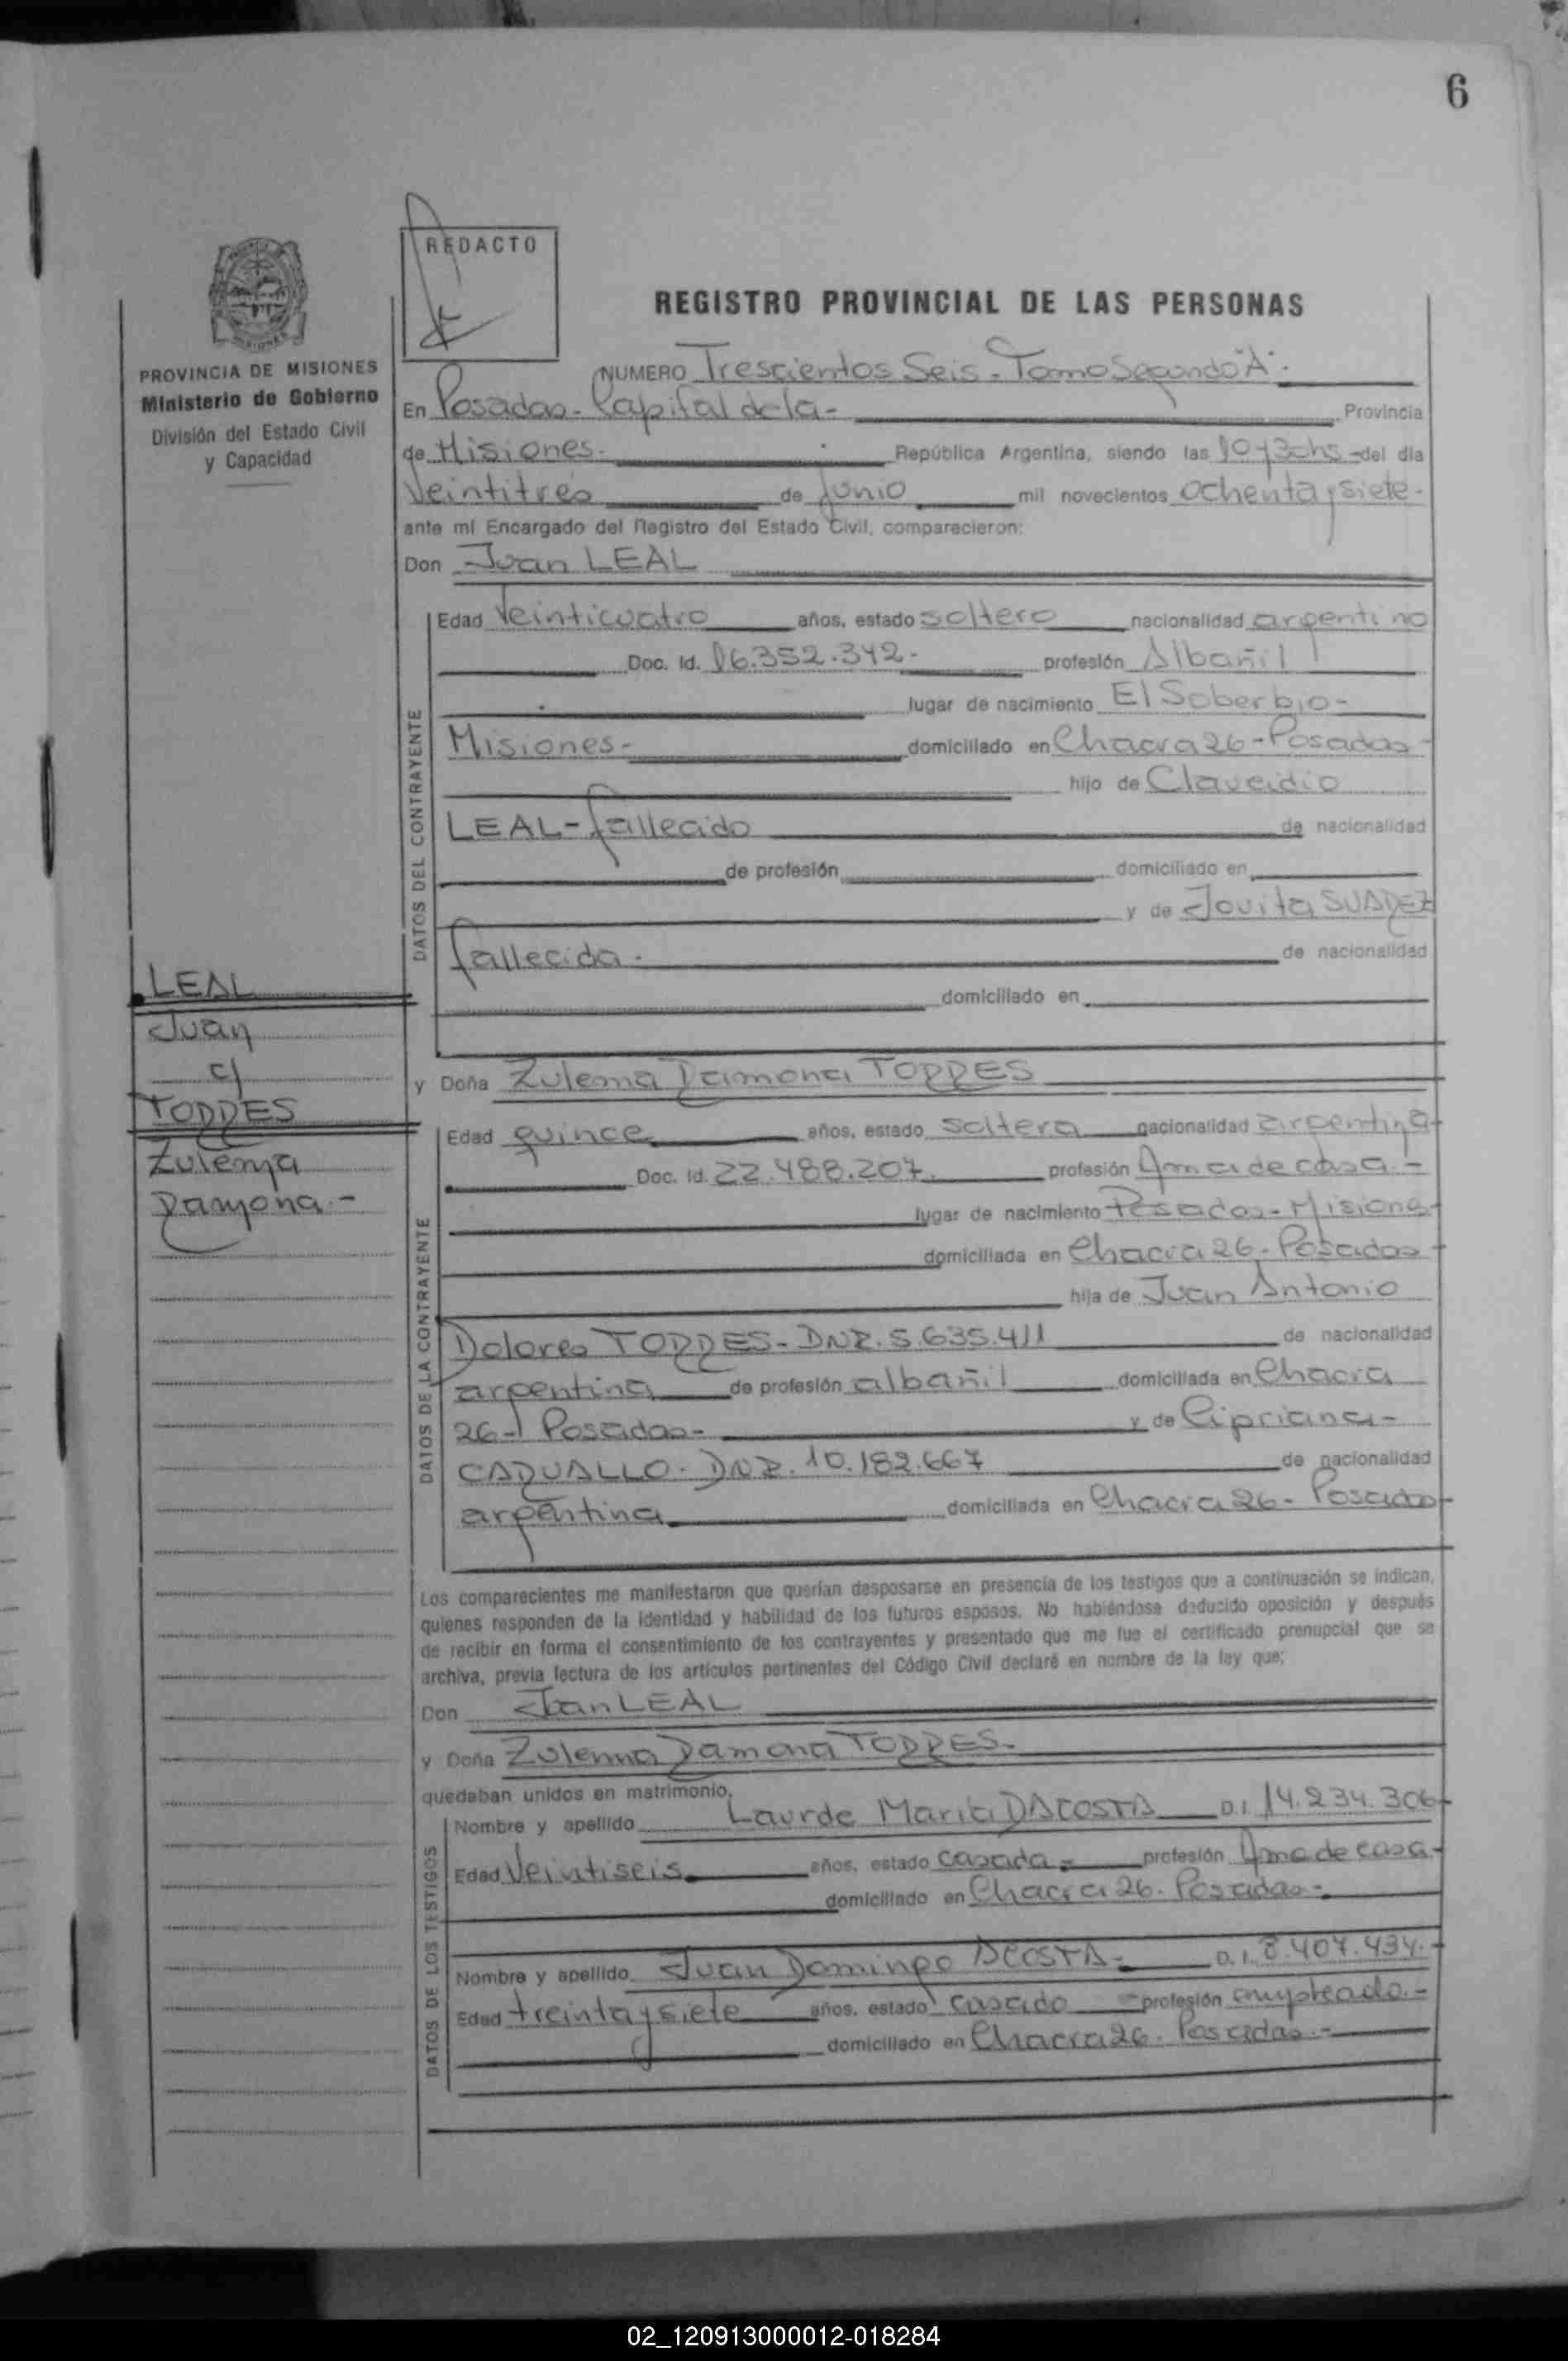 6
REDACTO
REGISTRO PROVINCIAL DE LAS PERSONAS
PROVINCIA DE MISIONES
Ministerio de Gobierno
División del Estado Civil
y Capacidad
NUMERO Trescientos Seis - Tomo Segundo "A" -
En Posadas - Capital de la - Provincia
de Misiones - República Argentina, siendo las 10 y 30 hs - del día
Veintitres de Junio mil novecientos ochenta y siete -
ante mí Encargado del Registro del Estado Civil, comparecieron:
Don Juan LEAL
DATOS DEL CONTRAYENTE
Edad Veinticuatro años, estado soltero nacionalidad argentino
Doc. Id. 16.352.342 - profesión Albañil
lugar de nacimiento El Soberbio -
Misiones - domiciliado en Chacra 26 - Posadas -
hijo de
LEAL - fallecido de nacionalidad
de profesión domiciliado en
y de Jovita SUAREZ
fallecida - de nacionalidad
domiciliado en
LEAL
Juan
c/
TORRES
Zulema
Ramona -
y Doña Zulema Ramona TORRES
DATOS DE LA CONTRAYENTE
Edad quince años, estado soltera nacionalidad argentina
Doc. Id. 22.488.207. profesión Ama de casa -
lugar de nacimiento Posadas - Misiones
domiciliada en Chacra 26 - Posadas -
hija de Juan Antonio
Dolores TORRES - DNI. 5.635.411 de nacionalidad
argentina de profesión albañil domiciliada en Chacra
26 - Posadas - y de Cipriana -
CARVALLO - DNI. 10.182.667 de nacionalidad
argentina domiciliada en Chacra 26 - Posadas
Los comparecientes me manifestaron que querían desposarse en presencia de los testigos que a continuación se indican,
quienes responden de la identidad y habilidad de los futuros esposos. No habiéndose deducido oposición y después
de recibir en forma el consentimiento de los contrayentes y presentado que me fue el certificado prenupcial que se
archiva, previa lectura de los artículos pertinentes del Código Civil declaré en nombre de la ley que;
Don Juan LEAL
y Doña Zulema Ramona TORRES -
quedaban unidos en matrimonio.
DATOS DE LOS TESTIGOS
Nombre y apellido Laurde Maria DACOSTA D.I. 14.234.306
Edad Veintiseis años, estado casada - profesión Ama de casa -
domiciliado en Chacra 26 - Posadas -
Nombre y apellido Juan Domingo ACOSTA - D.I. 8.407.434. -
Edad treinta y siete años, estado casado - profesión empleado. -
domiciliado en Chacra 26 - Posadas. -
02_120913000012-018284